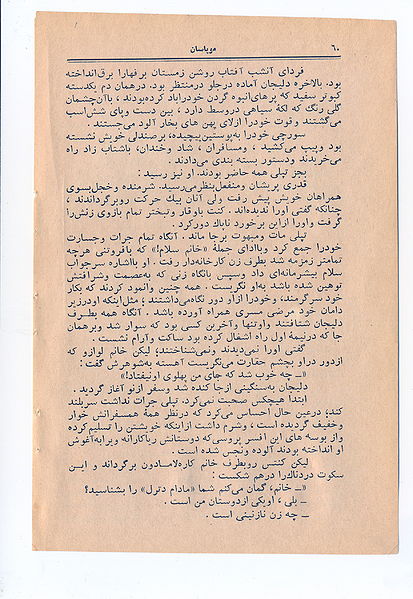 ۶۰
موپاسان
فردای آنشب آفتاب روشن زمستان برفهارا برق‌انداخته
بود. بالاخره دلیجان آماده درجلو درمنتظر بود. درهمان دم یکدسته
کبوتر سفید که پرهای‌انبوه گردن خودراباد کرده‌بودند، باآن‌چشمان
گلی رنگ که لکهٔ سیاهی دروسط دارد، بین دست وپای شش‌اسب
می‌گشتند و قوت خودرا ازلای پهن های بخار آلود می‌جستند.
سورچی خودرا به‌پوستین‌پیچیده، برصندلی خویش نشسته
بود وپیپ می‌کشید، ومسافران، شاد وخندان، باشتاب زاد راه
می‌خریدند ودستور بسته بندی می‌دادند.
بجز تپلی همه حاضر بودند. او نیز رسید:
قدری پریشان ومنفعل‌بنظر‌می‌رسید. شرمنده وخجل‌بسوی
همراهان خویش پیش رفت ولی آنان بیك حرکت روبرگرداندند،
چنانکه گفتی اورا ندیده‌اند. کنت باوقار وتبختر تمام بازوی زنش‌را
گرفت واورا ازاین برخورد ناپاك دورکرد.
تپلی مات ومبهوت برجا ماند. آنگاه تمام جرات وجسارت
خودرا جمع کرد وباادای جملهٔ «خانم سلام!» که بافروتنی هرچه
تمامتر زمزمه شد بطرف زن کارخانه‌دار رفت. او بااشاره سرجواب
سلام بیشرمانه‌ای داد وسپس بانگاه زنی که به‌عصمت وشرافتش
توهین شده باشد به‌او نگریست. همه چنین وانمود کردند که بکار
خود سرگرمند، وخودرا ازاو دور نگاه‌می‌داشتند؛ مثل‌اینکه اودرزیر
دامان خود مرضی مسری همراه آورده باشد. آنگاه همه بطرف
دلیجان شتافتند واوتنها وآخرین کسی بود که سوار شد وبرهمان
جا که درنیمهٔ اول راه اشغال کرده بود ساکت وآرام نشست.
گفتی اورا نمی‌دیدند ونمی‌شناختند؛ لیکن خانم لوازو که
ازدور دراو بچشم حقارت می‌نگریست آهسته به‌شوهرش گفت:
«ــ چه خوب شد که جای من پهلوی اونیفتاد!»
دلیجان به‌سنگینی ازجا کنده شد وسفر ازنو آغاز گردید.
ابتدا هیچکس صحبت نمی‌کرد. تپلی جرات نداشت سربلند
کند؛ درعین حال احساس می‌کرد که درنظر همهٔ همسفرانش خوار
وخفیف گردیده است، وشرم داشت ازاینکه خویشتن را تسلیم‌کرده
واز بوسه های این افسر پروسی‌که دوستانش ریاکارانه وی‌رابه‌آغوش
او انداخته بودند آلوده ونجس شده است.
لیکن کنتس روبطرف خانم کاره‌لامادون برگرداند و ایـن
سکوت دردناك‌را درهم شکست:
«ــ خانم، گمان می‌کنم شما «مادام دترل» را بشناسید؟
ــ بلی، اویکی ازدوستان من است.
ــ چه زن نازنینی است.